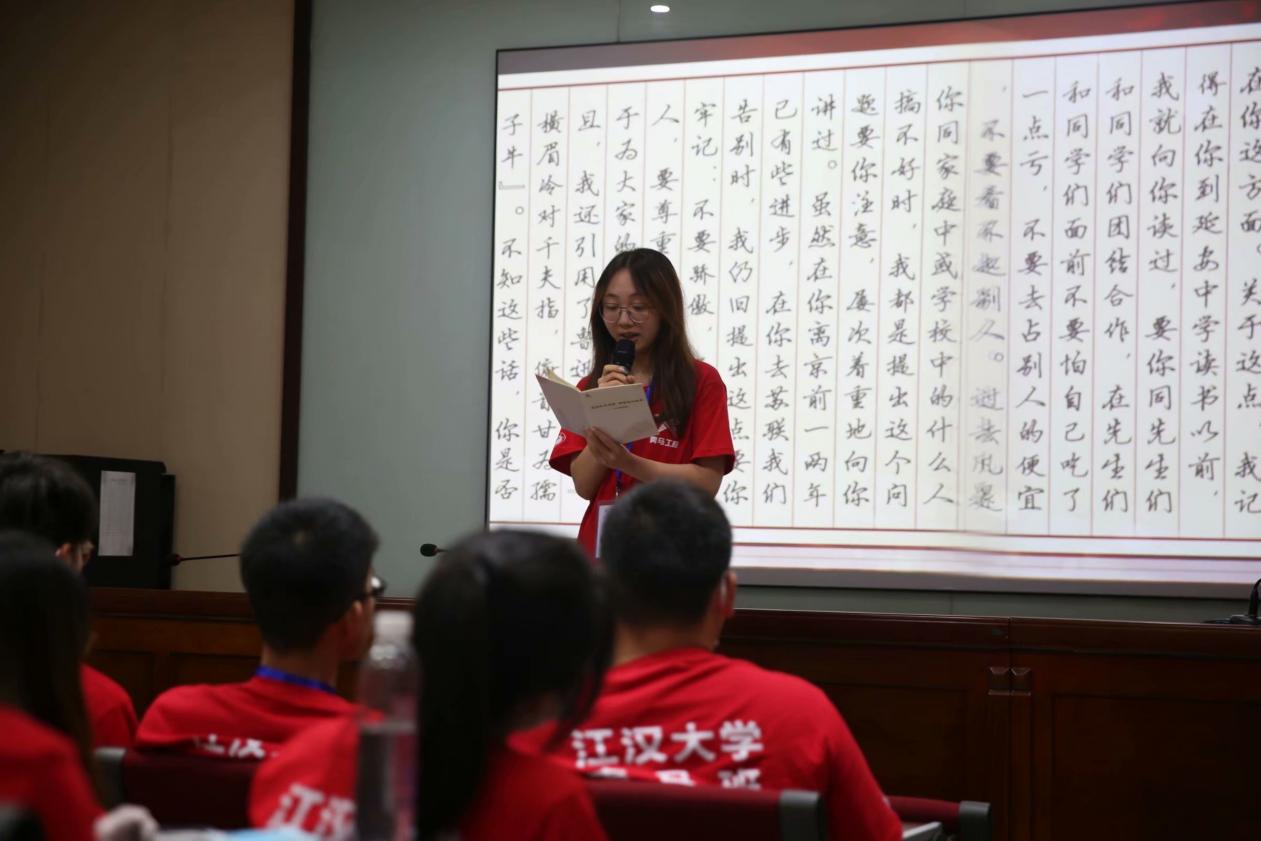 在你这方面。关于这点,我记
得在你到延安中学读书以前,
我就向你谈过,要你同先生们
和同学们团结合作,在先生们
和同学们面前不要怕自己吃了
一点亏,不要去占别人的便宜
,不要看不起别人。过去凡是
你同家庭中或学校中的什么人
搞不好时,我都是提出这个问
题要你注意,屡次着重地向你
讲过。虽然在你离京前一两年
已有些进步,在你去苏联我们
告别时,我仍旧提出这点要你
牢记:不要骄傲,
人,要尊重
于为大家的
且,我还引用了鲁迅
横眉冷对千夫指,首甘为孺
子牛』。不知这些话,你是否
青马工程
江汉大学
班
江汉